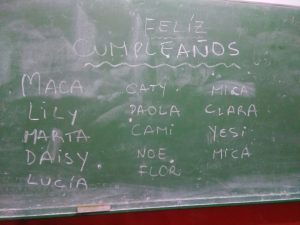 FELÍZ
CUMPLEAÑOS
MACA CATY MICA
LILY PAOLA CLARA
MARTA CAMI YESI
DAISY NOE MICA
LUCÍA FLOR